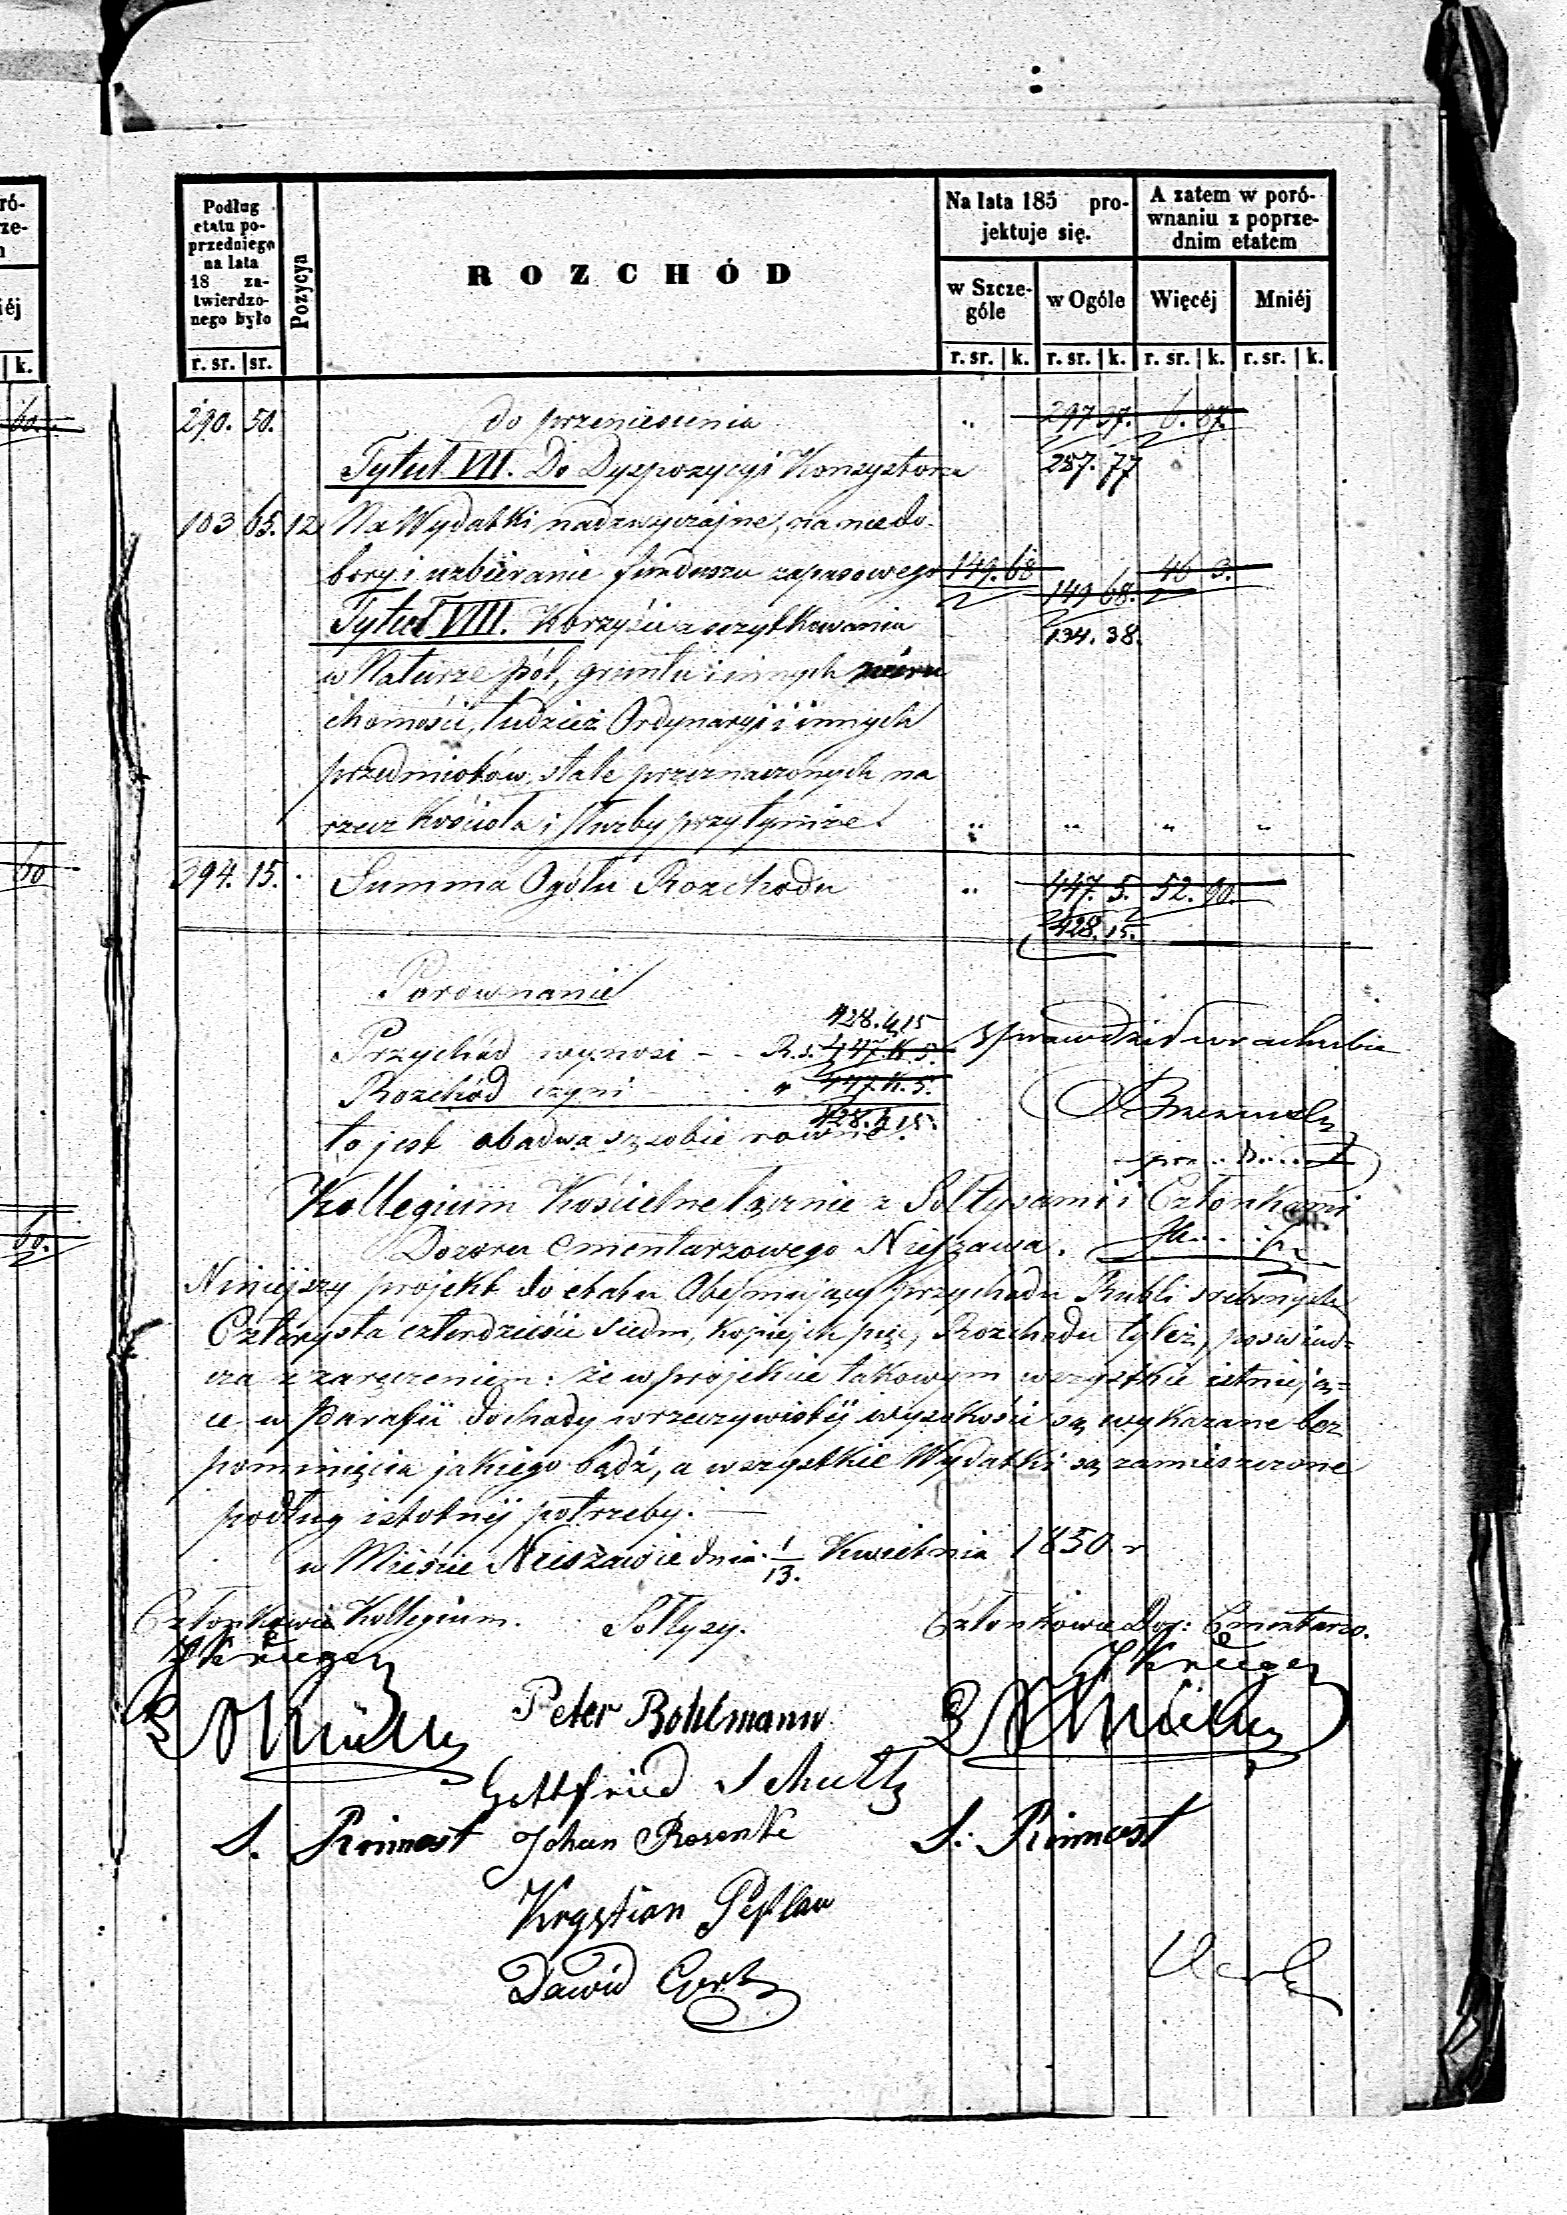 Podług
etatu po-
przedniego
na lata
18 za-
twierdzo-
nego było
r. sr. | sr.
Pozycya
ROZCHÓD
Na lata 185 pro-
jektuje się.
w Szcze-
góle
w Ogóle
A zatem w poró-
wnaniu z poprze-
dnim etatem
Więcéj
Mniéj
r. sr. | k. r. sr. | k. r. sr. | k. r. sr. | k.
290. 50. do przeniesienia " 297. 37. 6. 87.
Tytuł VII. Do Dyspozycyi Konsystorza 287. 77
103 65. 12 Na Wydatki nadzwyczajne, na niedo-
bory i uzbieranie funduszu zapasowego 149. 68 149 68. 46 3.
Tytuł VIII. Korzyści z użytkowania 134. 38.
w Naturze pól, gruntu i innych nieru
chomości, tudzież Ordynaryi i innych
przedmiotów, stale przeznaczonych na
rzecz Kościoła i służby przy tymże. " " " "
394. 15. Summa Ogółu Rozchodu " 447. 5. 52. 90.
428. 15.
Porównanie
428. k. 15
Przychód wynosi - - R.s. 447. K. 5.
Sprawdził w rachubie
Rozchód czyni " 447. K. 5.
428. k. 15.
to jest obadwa są sobie równe.
Kollegium Kościelne łącznie z Sołtysami i Członkami
Dozoru Cmentarzowego Nieszawa.
Niniejszy projekt do etatu Obejmujący przychodu Rubli srebrnych
Czterysta czterdzieści siedm, kopiejek pięć, Rozchodu tyleż, poświad-
cza z zaręczeniem: że w projekcie takowym wszystkie istnieją=
ce w Parafii dochody w rzeczywistéj wysokości są wykazane bez
pominięcia jakiego bądź, a wszystkie Wydatki są zamieszczone
podług istotnéj potrzeby. —
w Mieście Nieszawie dnia 1/13. Kwietnia 1850 r
Członkowie Kollegium. Sołtysy. Członkowie Doz: Cmentarzo.
Krüger Krüger
Müller Peter Bohlmann Müller
Gottfried Schultz
S. Rimmast Johan Rosenke S. Rimmast
Krystian Peplau
Dawid Gertz